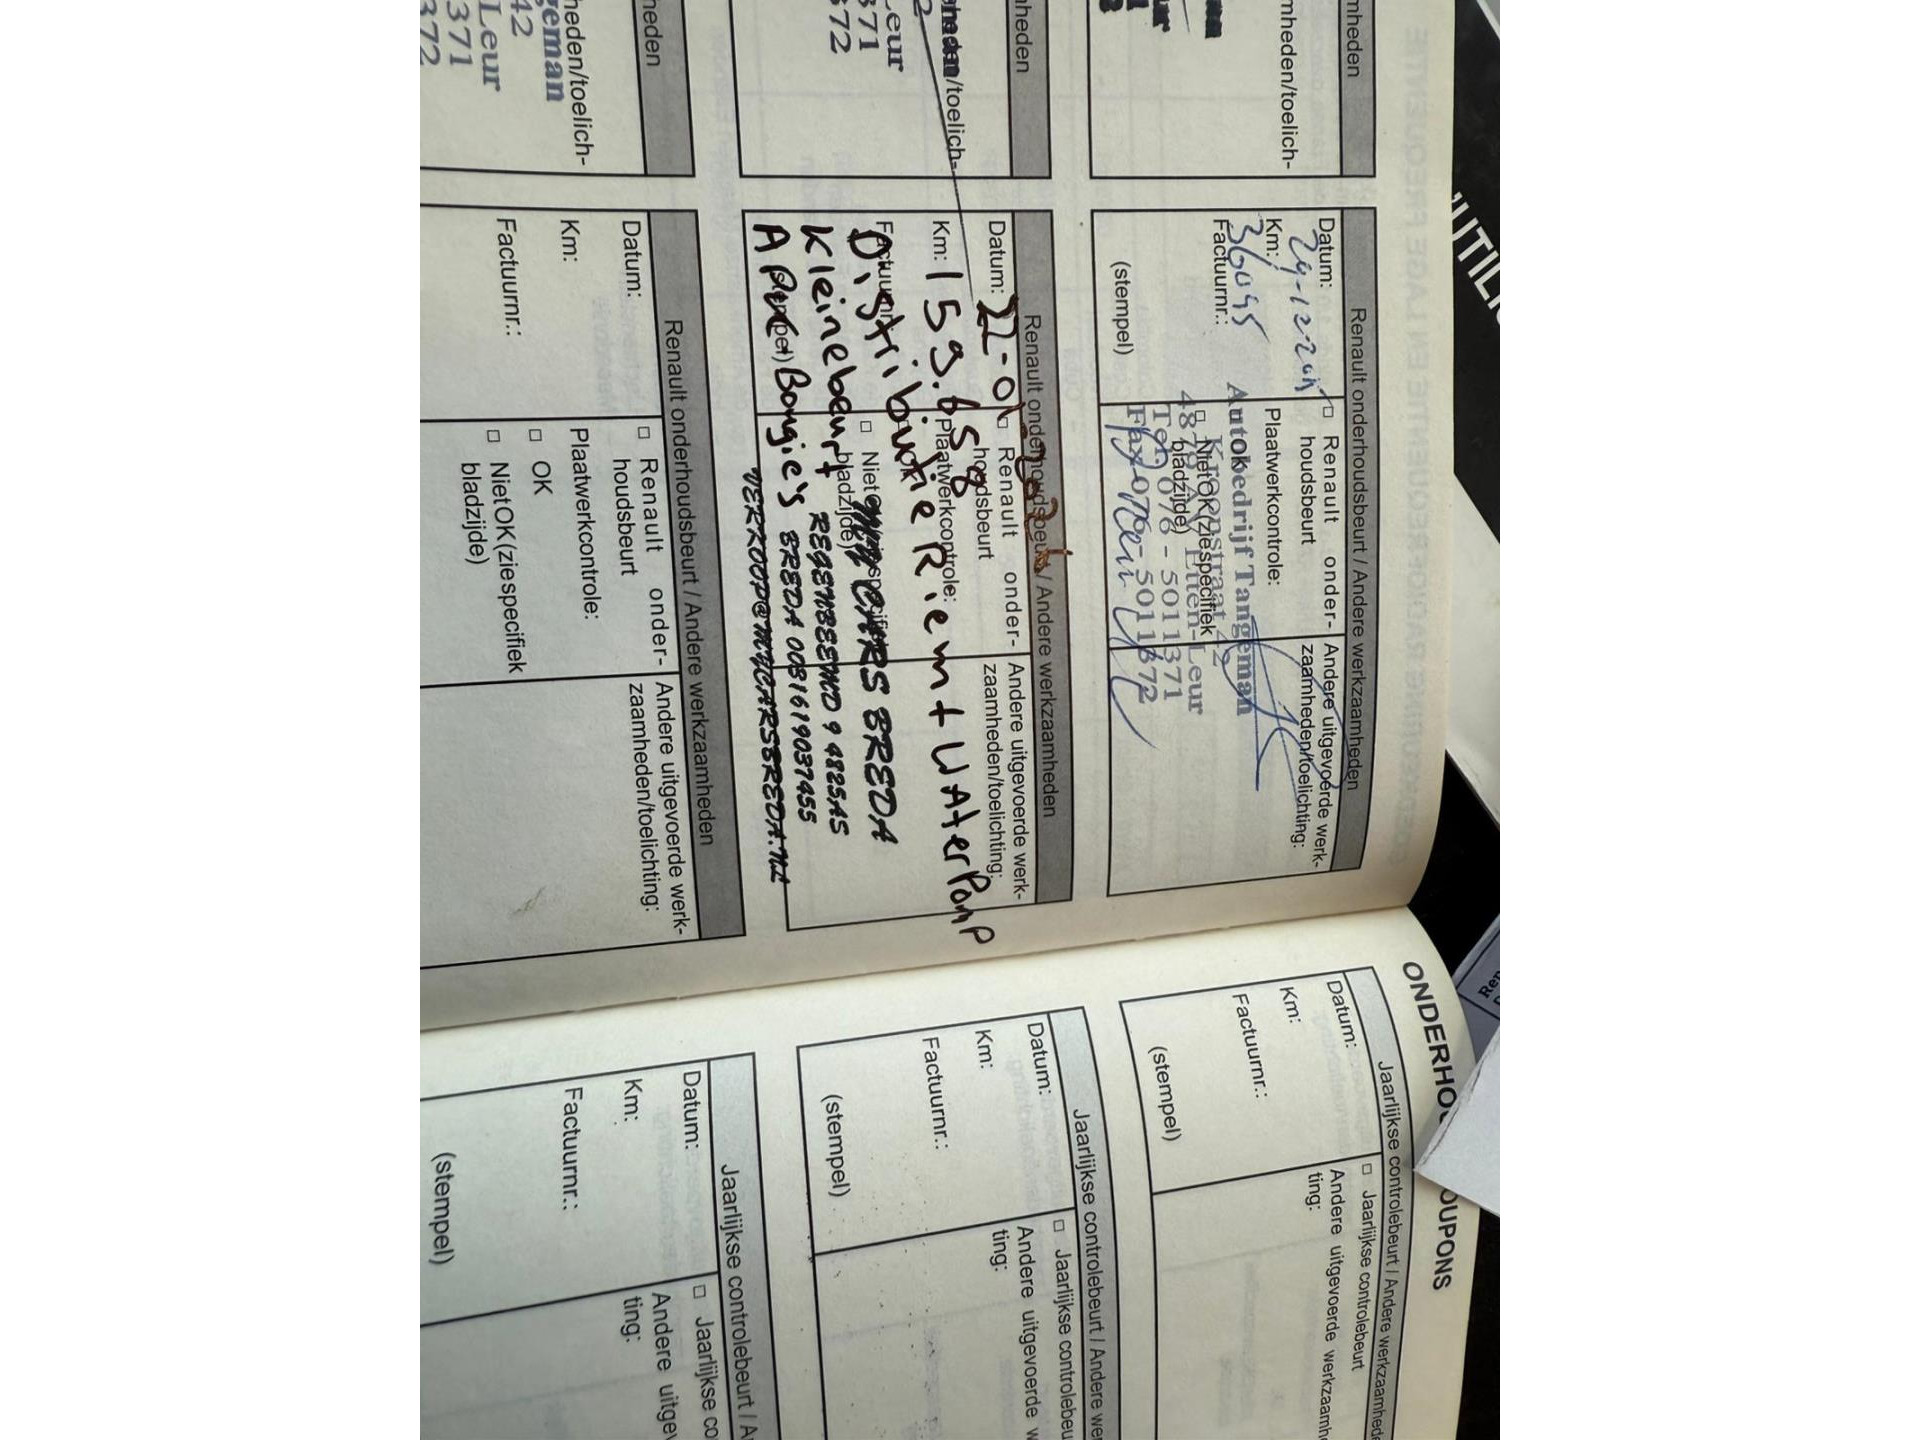 mheden
mheden/toelich-
Renault onderhoudsbeurt / Andere werkzaamheden
Datum:
Km: 36095
Factuurnr.:
(stempel)
□ Renault onder-
houdsbeurt
Plaatwerkcontrole:
□ Niet OK (zie specifiek
bladzijde)
Andere uitgevoerde werk-
zaamheden/toelichting:
Autobedrijf Tangeman
Kroonstraat 42
Etten-Leur
Tel. 076 - 5011371
Fax 076 - 5011372
heden
/toelich-
Leur
371
372
Renault onderhoudsbeurt / Andere werkzaamheden
Datum: 22-01-
Km: 159.658
Factuurnr.:
□ Renault onder-
houdsbeurt
Plaatwerkcontrole:
□ Niet
bladzijde)
Andere uitgevoerde werk-
zaamheden/toelichting:
Distributie Riem + WAterPomP
Kleinebeurt
APK Bougie's
MYCARS BREDA
REGENBEEMD 9 4825AS
BREDA 0031619037455
VERKOOP@MYCARSBREDA.NL
heden
heden/toelich-
geman
42
Leur
371
372
Renault onderhoudsbeurt / Andere werkzaamheden
Datum:
Km:
Factuurnr.:
□ Renault onder-
houdsbeurt
Plaatwerkcontrole:
□ OK
□ Niet OK (zie specifiek
bladzijde)
Andere uitgevoerde werk-
zaamheden/toelichting:
Jaarlijkse controlebeurt / Andere werkzaamhede
Datum:
Km:
Factuurnr.:
(stempel)
□ Jaarlijkse controlebeurt
Andere uitgevoerde werkzaamh
ting:
Jaarlijkse controlebeurt / Andere wer
Datum:
Km:
Factuurnr.:
(stempel)
□ Jaarlijkse controlebeu
Andere uitgevoerde w
ting:
Jaarlijkse controlebeurt / A
Datum:
Km:
Factuurnr.:
(stempel)
□ Jaarlijkse co
Andere uitgev
ting: